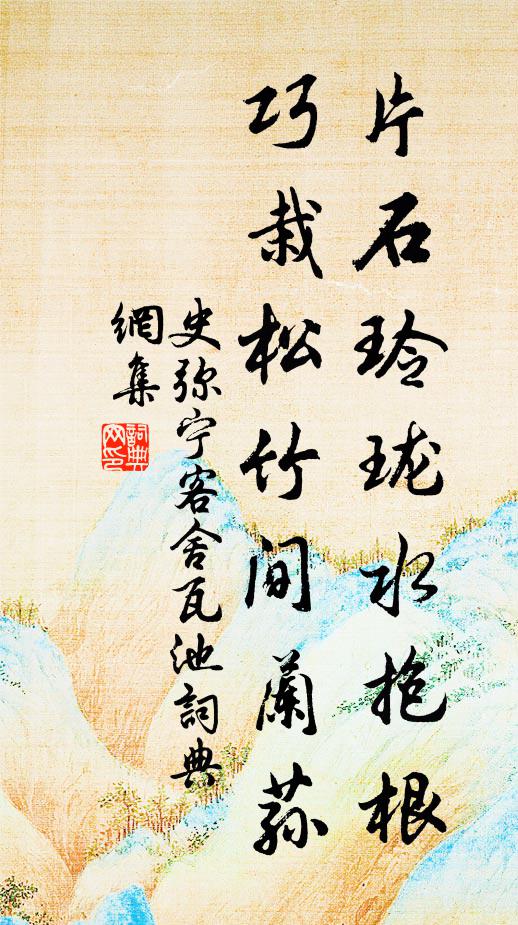 片石玲珑水抱根
巧栽松竹间兰荪
史弥宁客舍瓦池詞典
網集
詞典網印